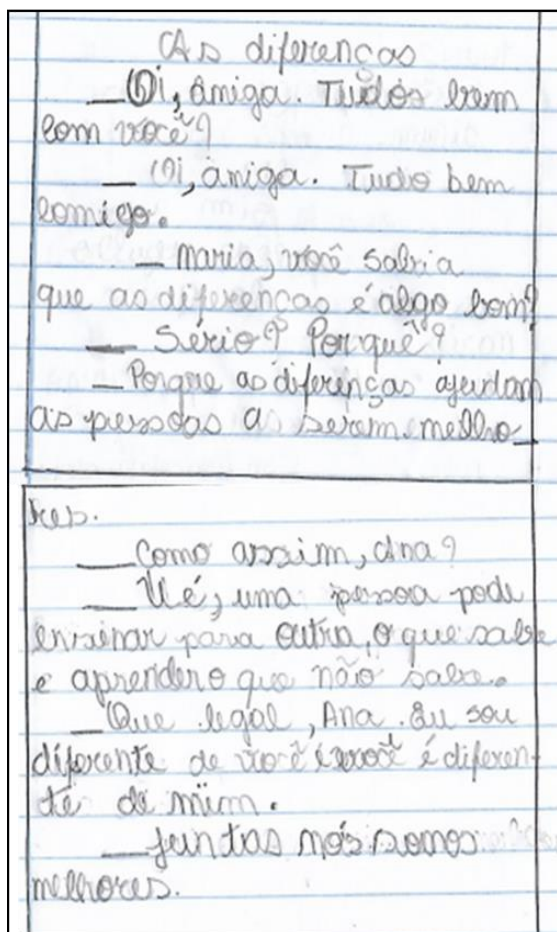 As diferenças
— Oi, âmiga. Tudos bem
com você?
— Oi, âmiga. Tudo bem
comigo.
— Maria, você sabia
que as diferenças é algo bom?
— Sério? Por quê?
— Porque as diferenças ajudam
as pessoas a serem melho_
res.
— Como assim, Ana?
— Ué, uma pessoa pode
ensinar para outra, o que sabe
e aprender o que não sabe.
— Que legal, Ana. Eu sou
diferente de você e você é diferen-
te de mim.
— Juntas nós somos
melhores.